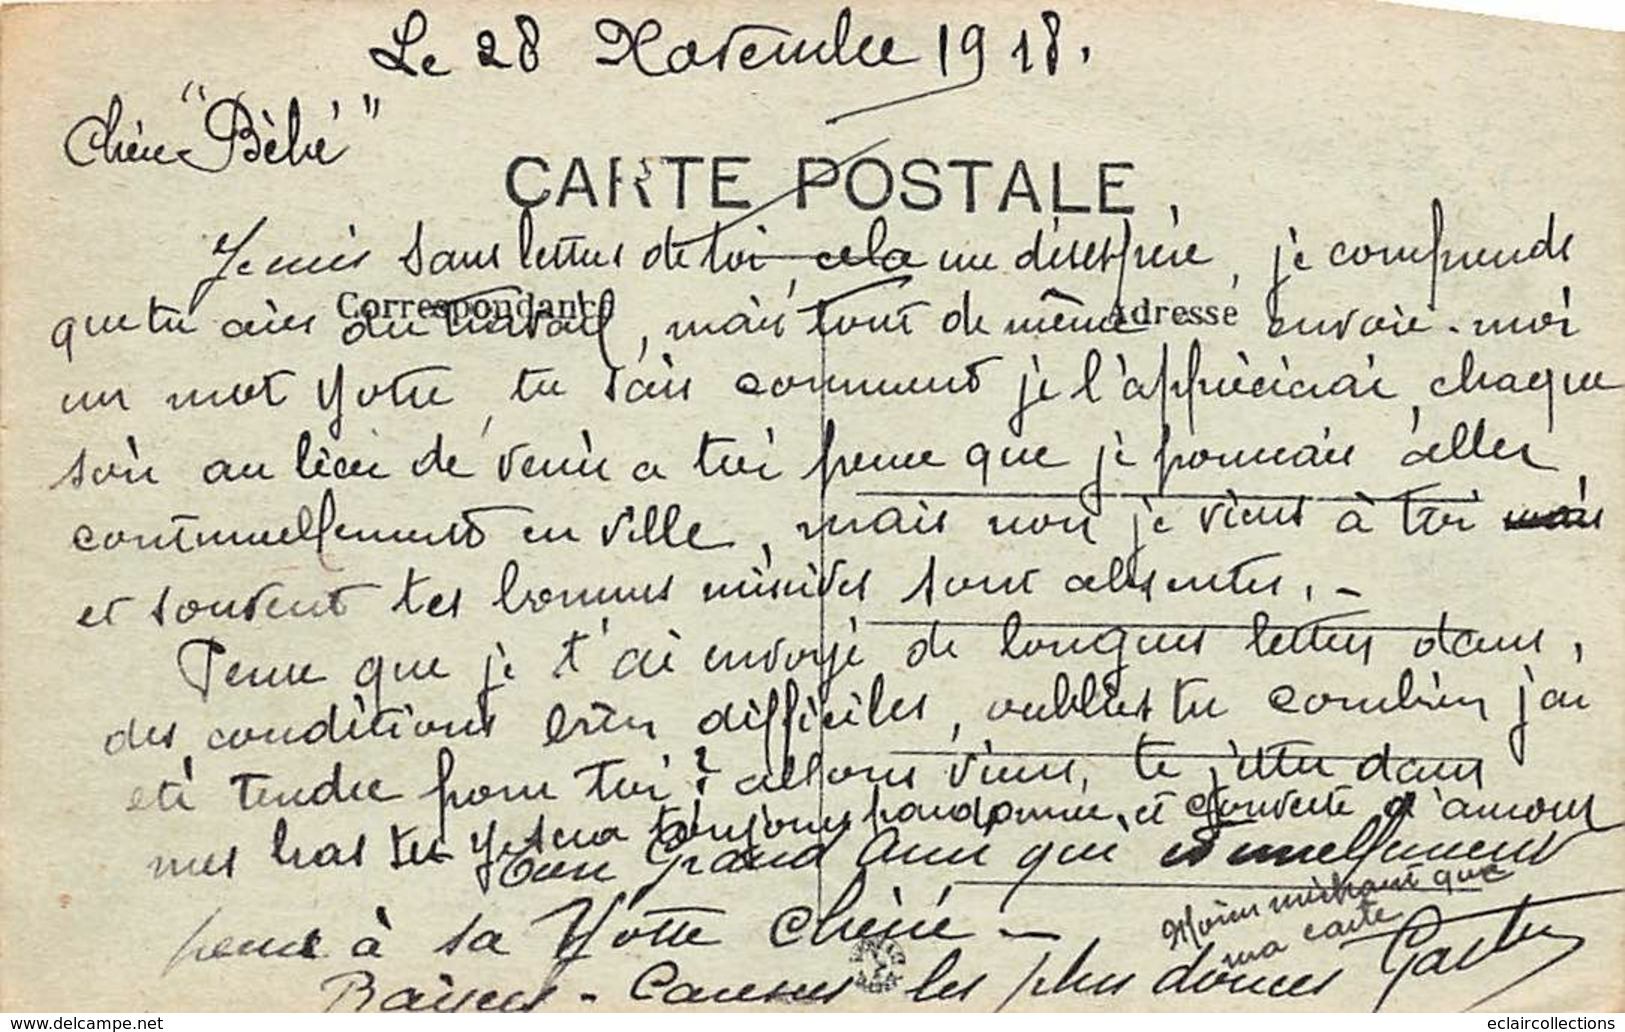 Le 28 Novembre 1918.
Chère "Bèbé"
CARTE POSTALE
Je suis sans lettres de toi, cela me désespère, je comprends
Correspondance
Adresse
que tu aies du travail, mais tout de même envoie-moi
un mot Yotte, tu sais comment je l'apprécierai, chaque
soir au lieu de venir a toi pense que je pourrais aller
continuellement en ville, mais non je viens à toi
et souvent tes bonnes missives sont absentes. -
Pense que je t'ai envoyé de longues lettres dans,
des conditions bien difficiles, oublies tu combien j'ai
été tendre pour toi? allons viens, te jetter dans
mes bras tu y sera toujours pardonnée, et couverte d'amour
Ton Grand Ami qui éternellement
pense à sa Yotte Chérie -
Moins méchant que
ma carte
Baisers - Caresses les plus douces Gaston
eclaircollections
www.delcampe.net